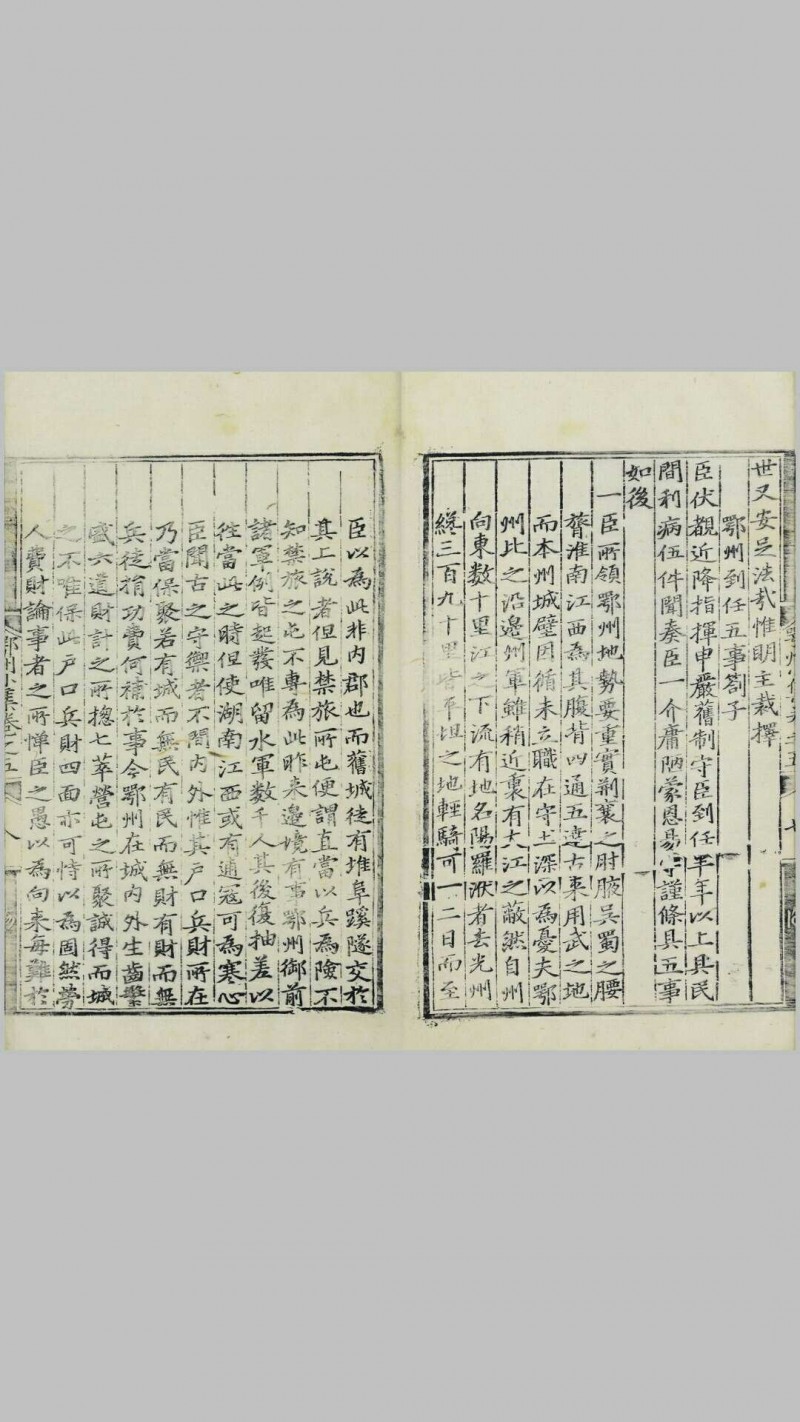 世又安足法哉惟明主裁擇
鄂州到任五事劄子
臣伏覩近降指揮申嚴舊制守臣到任半年以上具民
間利病伍件聞奏臣一介庸陋蒙恩易守謹條具五事
如後
一臣所領鄂州地勢要重實荆襄之肘腋吳蜀之腰
膂淮南江西為其腹背四通五達古来用武之地
而本州城壁因循未立職在守土深以為憂夫鄂
州比之沿邊州軍雖稍近裏有大江之蔽然自州
向東數十里江之下流有地名陽羅洑者去光州
纔三百九十里皆平坦之地輕騎可一二日而至
臣以為此非内郡也而舊城徒有堆阜蹊隧交於
其上說者但見禁旅所屯便謂直當以兵為險不
知禁旅之屯不專為此昨来邊境有事鄂州御前
諸軍例皆起發唯留水軍數千人其後復抽差以
徃當此之時但使湖南江西或有逋冦可為寒心
臣聞古之守禦者不問内外惟其戶口兵財所在
乃當保聚若有城而無民有民而無財有財而無
兵徒捐功費何補於事今鄂州在城内外生齒繫
盛六道財計之所揔七萃營屯之所聚誠得而城
之不唯保此戶口兵財四面亦可恃以為固然勞
人費財論事者之所憚臣之愚以為向来每難於
鄂州小集卷之五
八